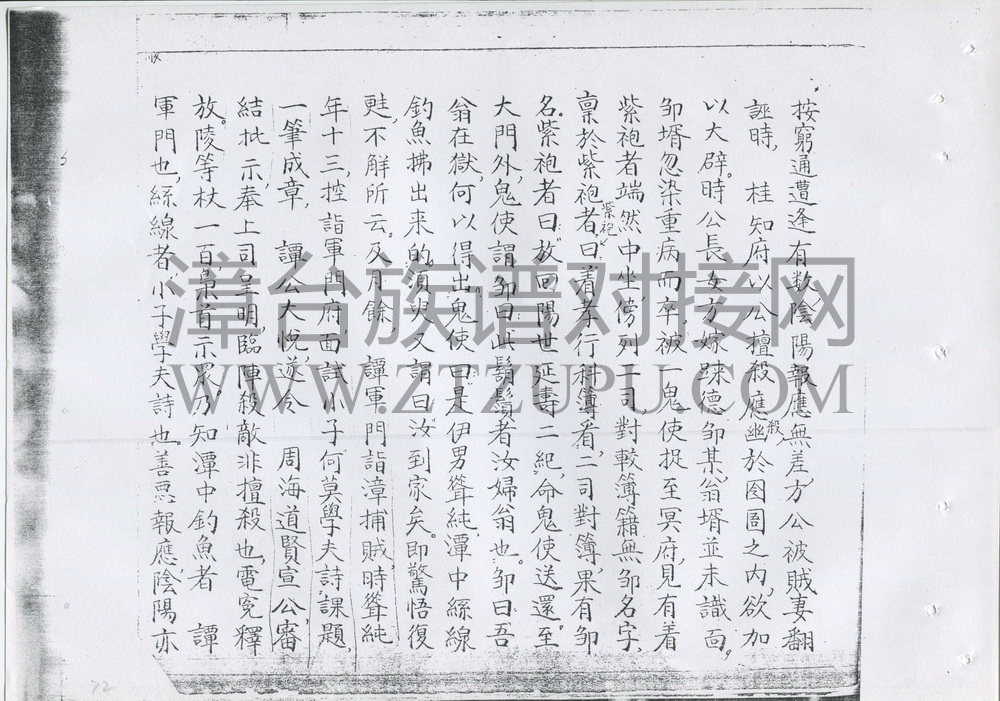 按窮通遭逢有数,陰陽報應無差,方公被賊妻翻
誣時, 桂知府以公擅殺應殺幽於囹圄之内,欲加
以大辟。時公長女方嫁踈德鄒某,翁壻並未識面。
鄒壻忽染重病而卒,被一鬼使捉至冥府,見有着
紫袍者端然中坐,傍列二司,對較簿籍無鄒名字,
禀於紫袍者,紫袍曰着孝行科簿看,二司對簿,果有鄒
名。紫袍者曰放囬陽世延壽二紀,命鬼使送還。至
大門外,鬼使謂鄒曰此鬍鬚者汝婦翁也。鄒曰吾
翁在獄,何以得出,鬼使曰是伊男聳純,潭中絲線
釣魚拂出来的,須臾又謂曰汝到家矣。即驚悟復
甦不解所云。及月餘, 譚軍門詣漳捕賊,時聳純
年十三,控詣軍門府,面試小子何莫學夫詩課題,
一筆成章, 譚公大悦,遂令 周海道賢宣公審
結批示,奉上司呈明,臨陣殺敵非擅殺也,雪寃釋
放。陵等杖一百,梟首示眾。乃知潭中釣魚者 譚
軍門也,絲線者小子學夫詩也善惡報應,陰陽亦
漳台族谱对接网
WWW.ZTZUPU.COM
72